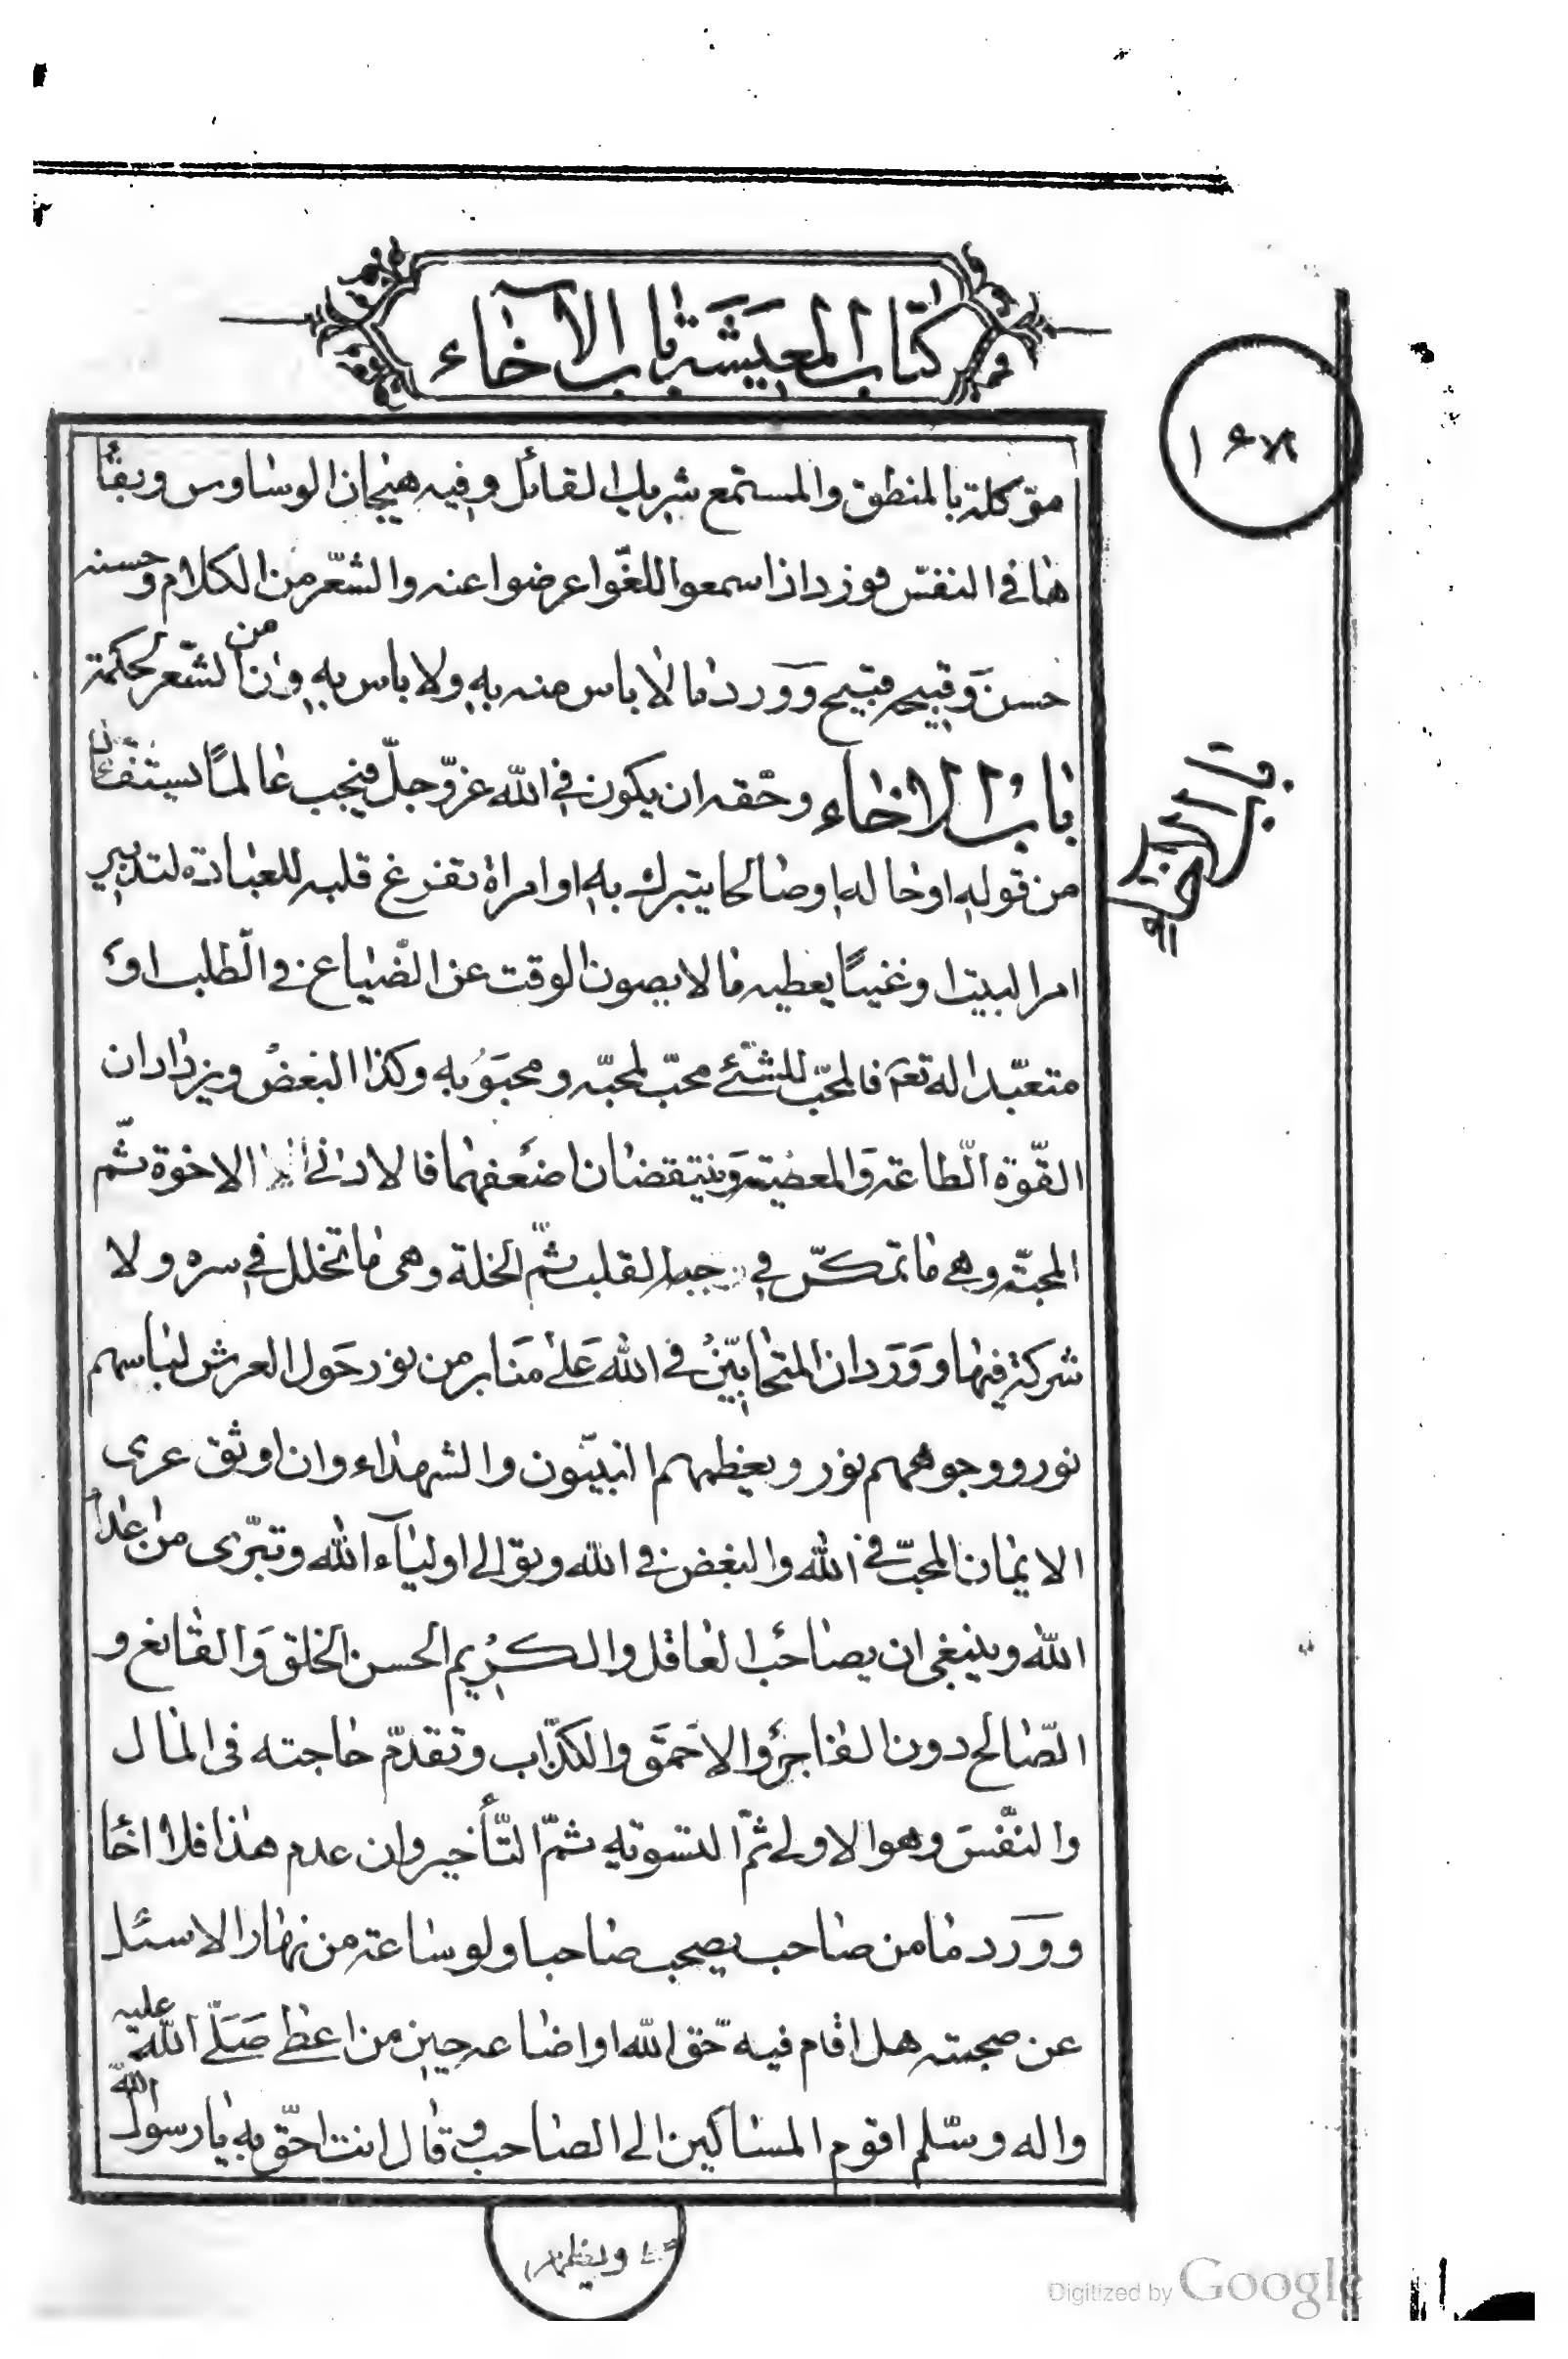 كتاب المعيشة باب الآخاء
١٦٨
موكلة بالمنطق والمستمع شريك القائل وفيه هيجان الوساوس وبقأ
ها في النفس فورد اذا سمعوا اللغو اعرضوا عنه والشعر من الكلام وحسنه
حسن وقبيحه قبيح وورد ما لا باس منه به ولا باس به وان من الشعر لحكمة
باب الاخاء وحقه ان يكون في الله عز وجل فيحب عالمًا يستفاد
من قوله او حاله او صالحا يتبرك به او امراة تفرغ قلبه للعبادة لتدبير
امر البيت او غنيًا يعطيه مالا يصون الوقت عن الضياع في الطلب او
متعبدا له تع فالمحب للشئ محب لمحبه ومحبوبه وكذا البغض ويزدادان
القوة الطاعة والمعصية وينتقضان ضعفهما فالادنى الاخوة ثم
المحبة وهي ما تمكن في القلب ثم الخلة وهى ما تخلل في سره ولا
شركة فيها وورد ان المتحابين في الله على منابر من نور حول العرش لباسهم
نور ووجوههم نور ويغبطهم النبيون والشهداء وان اوثق عرى
الايمان الحب في الله والبغض في الله وتوالى اولياء الله وتبرى من اعداء
الله وينبغى ان يصاحب العاقل والكريم الحسن الخلق والقانع و
الصالح دون الفاجر والاحمق والكذاب وتقدم حاجته في المال
والنفس وهو الاولى ثم التسوية ثم التأخير وان عدم هذا فلا اخا
وورد ما من صاحب يصحب صاحبا ولو ساعة من نهار الا سئل
عن صحبته هل اقام فيه حق الله او اضاعه حين من اعطى صلى الله عليه
واله وسلم اقوم المساكين الى الصاحب وقال انت احق به يا رسول الله
Digitized by Google